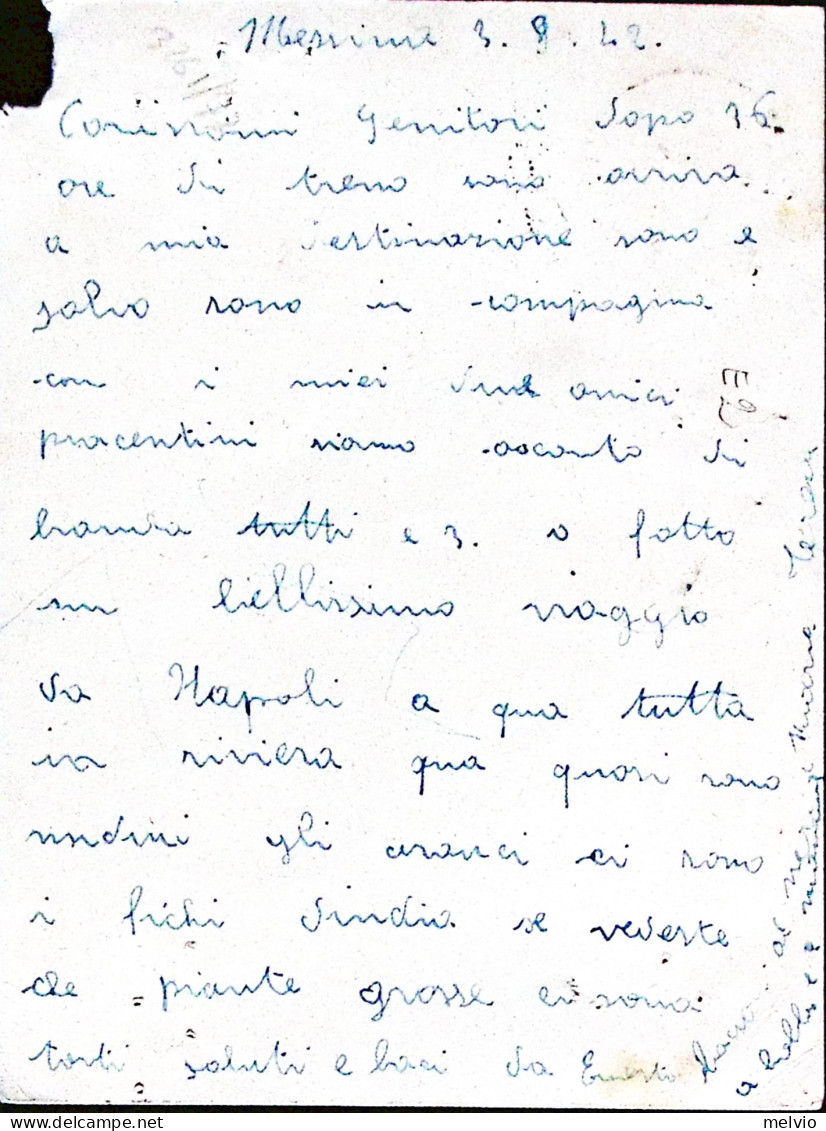 Messina 3. 8. 42.
Carissimi genitori dopo 36
ore di treno sono arriva
a mia destinazione sono e
salvo sono in compagnia
con i miei due amici
piacentini siamo accanto di
branda tutti e 3. o fatto
un bellissimo viaggio
da Napoli a qua tutta
in riviera qua quasi sono
gli aranci ci sono
i fichi dindia se vedeste
che piante grosse ci sono
tanti saluti e baci da Ernesto
E2
melvio